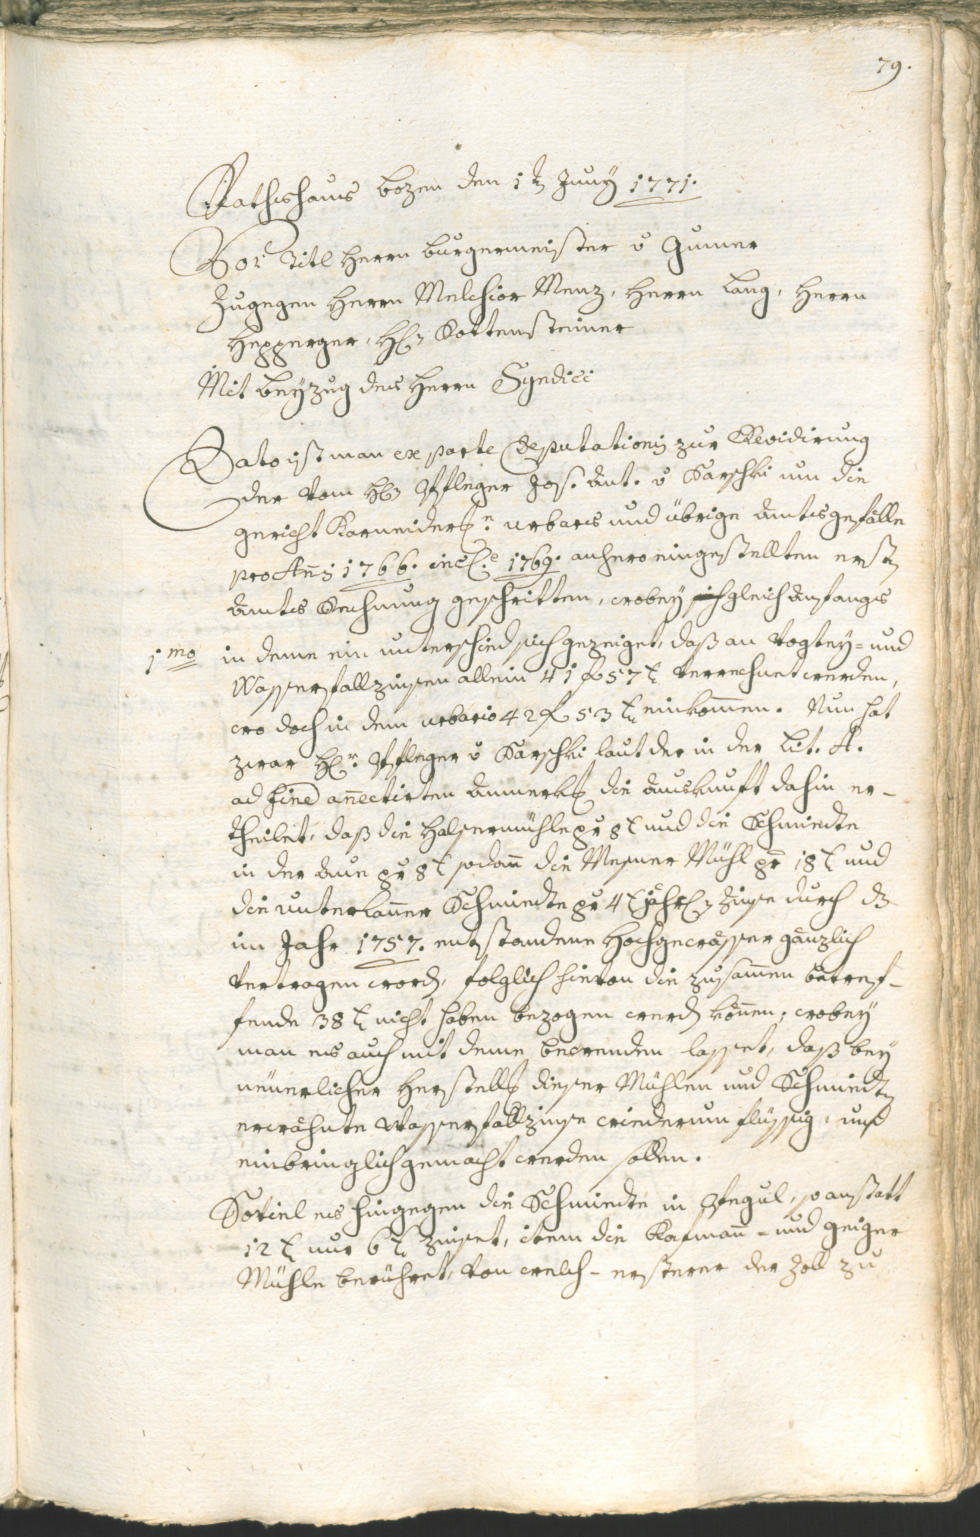 79.
Rathshaus bozen den 1t Juny 1771.
Vor Titl Herrn burgermeister v Gumer
Zugegen Herrn Melchior Menz, Herrn Lang, Herrn
Hepperger, H: Rottensteiner
Mit beyzug des Herrn Syndici
Dato ist man ex parte Deputationis zur Revidirung
der vom H: Pfleger Jos. Ant. v Larschki um die
gericht Karneiderse. urbars und übrige Amtsgefälle
pro Anis 1766. incl.e 1769. anhero eingestellten erstn
Amts Rechnung geschritten, wobey sich gleich Anfangs
1mo in deme ein unterschied sich gezeiget, daß an Vogtey- und
Wasserfallzinsen allein 41 f 57 x verrechnet werden,
wo doch in dem urbario 42 f 53 x einkomen. Nun hat
zwar H: Pfleger v Larschki laut der in der Lit. A.
ad fine annectirten Anmerkg die Auskunft dahin er-
theilet, daß die Halsermühle pr 8 x und die Schmidte
in der Aue pr 8 x, sodan die Mesner Mühl pr 18 x und
die unterkaner Schmidte pr 4 x jährl: Zinse durch dz
im Jahr 1757. entstandene Hochgewässer gänzlich
vertragen word, folglich hievon die zusammen betref-
fende 38 x nicht haben bezogen werd können; wobey
man es auch mit deme bewenden lasset, daß bey
neuerlicher Herstellg dieser Mühlen und Schmidtn
erwähnte Wasserfallzinse wiederum flüssig, und
einbringlich gemacht werden sollen.
Soviel es hingegen die Schmidte in Stegul, so anstatt
12 x nur 6 x Zinset, item die Kasman- und Geiger
Mühle berühret, von welch- ersterer der Zoll zu